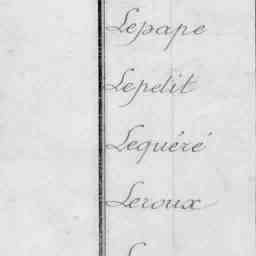 Lepape
Lepetit
Lequéré
Leroux